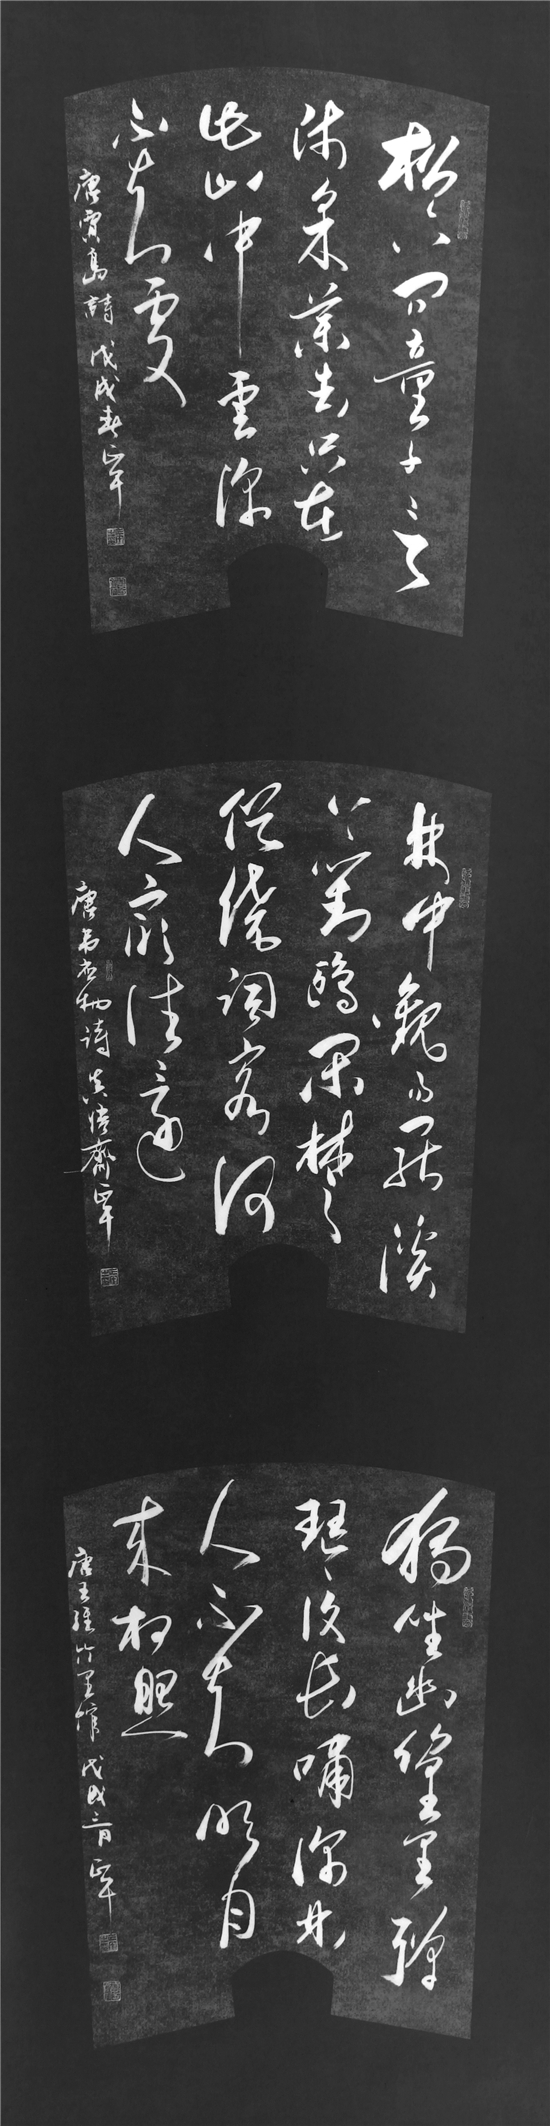 松下問童子言
师采藥去只在
此山中雲深
不知處
唐賈島詩 戊戌春
林中觀易罷溪
上對鷗閑楚
俗饒詞客何
人最往還
唐韋应物詩
獨坐幽篁里彈
琴復長嘯深林
人不知明月
來相照
唐王維竹里館 戊戌三月